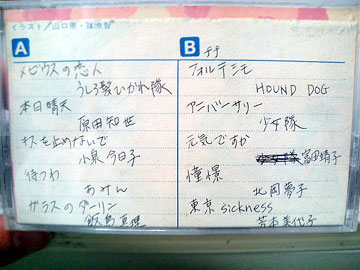 イラスト/山口恵・篠原智
A
メビウスの恋人
うしろ髪ひかれ隊
本日晴天
原田知世
キスを止めないで
小泉今日子
待つわ
あみん
ガラスのダーリン
飯島真理
B ff
フォルテシモ
HOUND DOG
アニバーサリー
少女隊
元気ですか
富田靖子
憧憬
北岡夢子
東京 sickness
芳本美代子